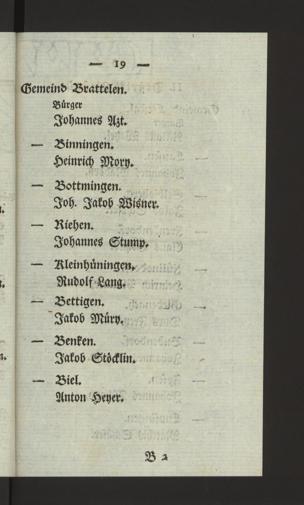 — 19 —
Gemeind Brattelen.
Bürger
Johannes Azt.
— Binningen.
Heinrich Mory.
— Bottmingen.
Joh. Jakob Wisner.
— Riehen.
Johannes Stump.
— Kleinhüningen.
Rudolf Lang.
— Bettigen.
Jakob Müry.
— Benken.
Jakob Stöcklin.
— Biel.
Anton Heyer.
B 2